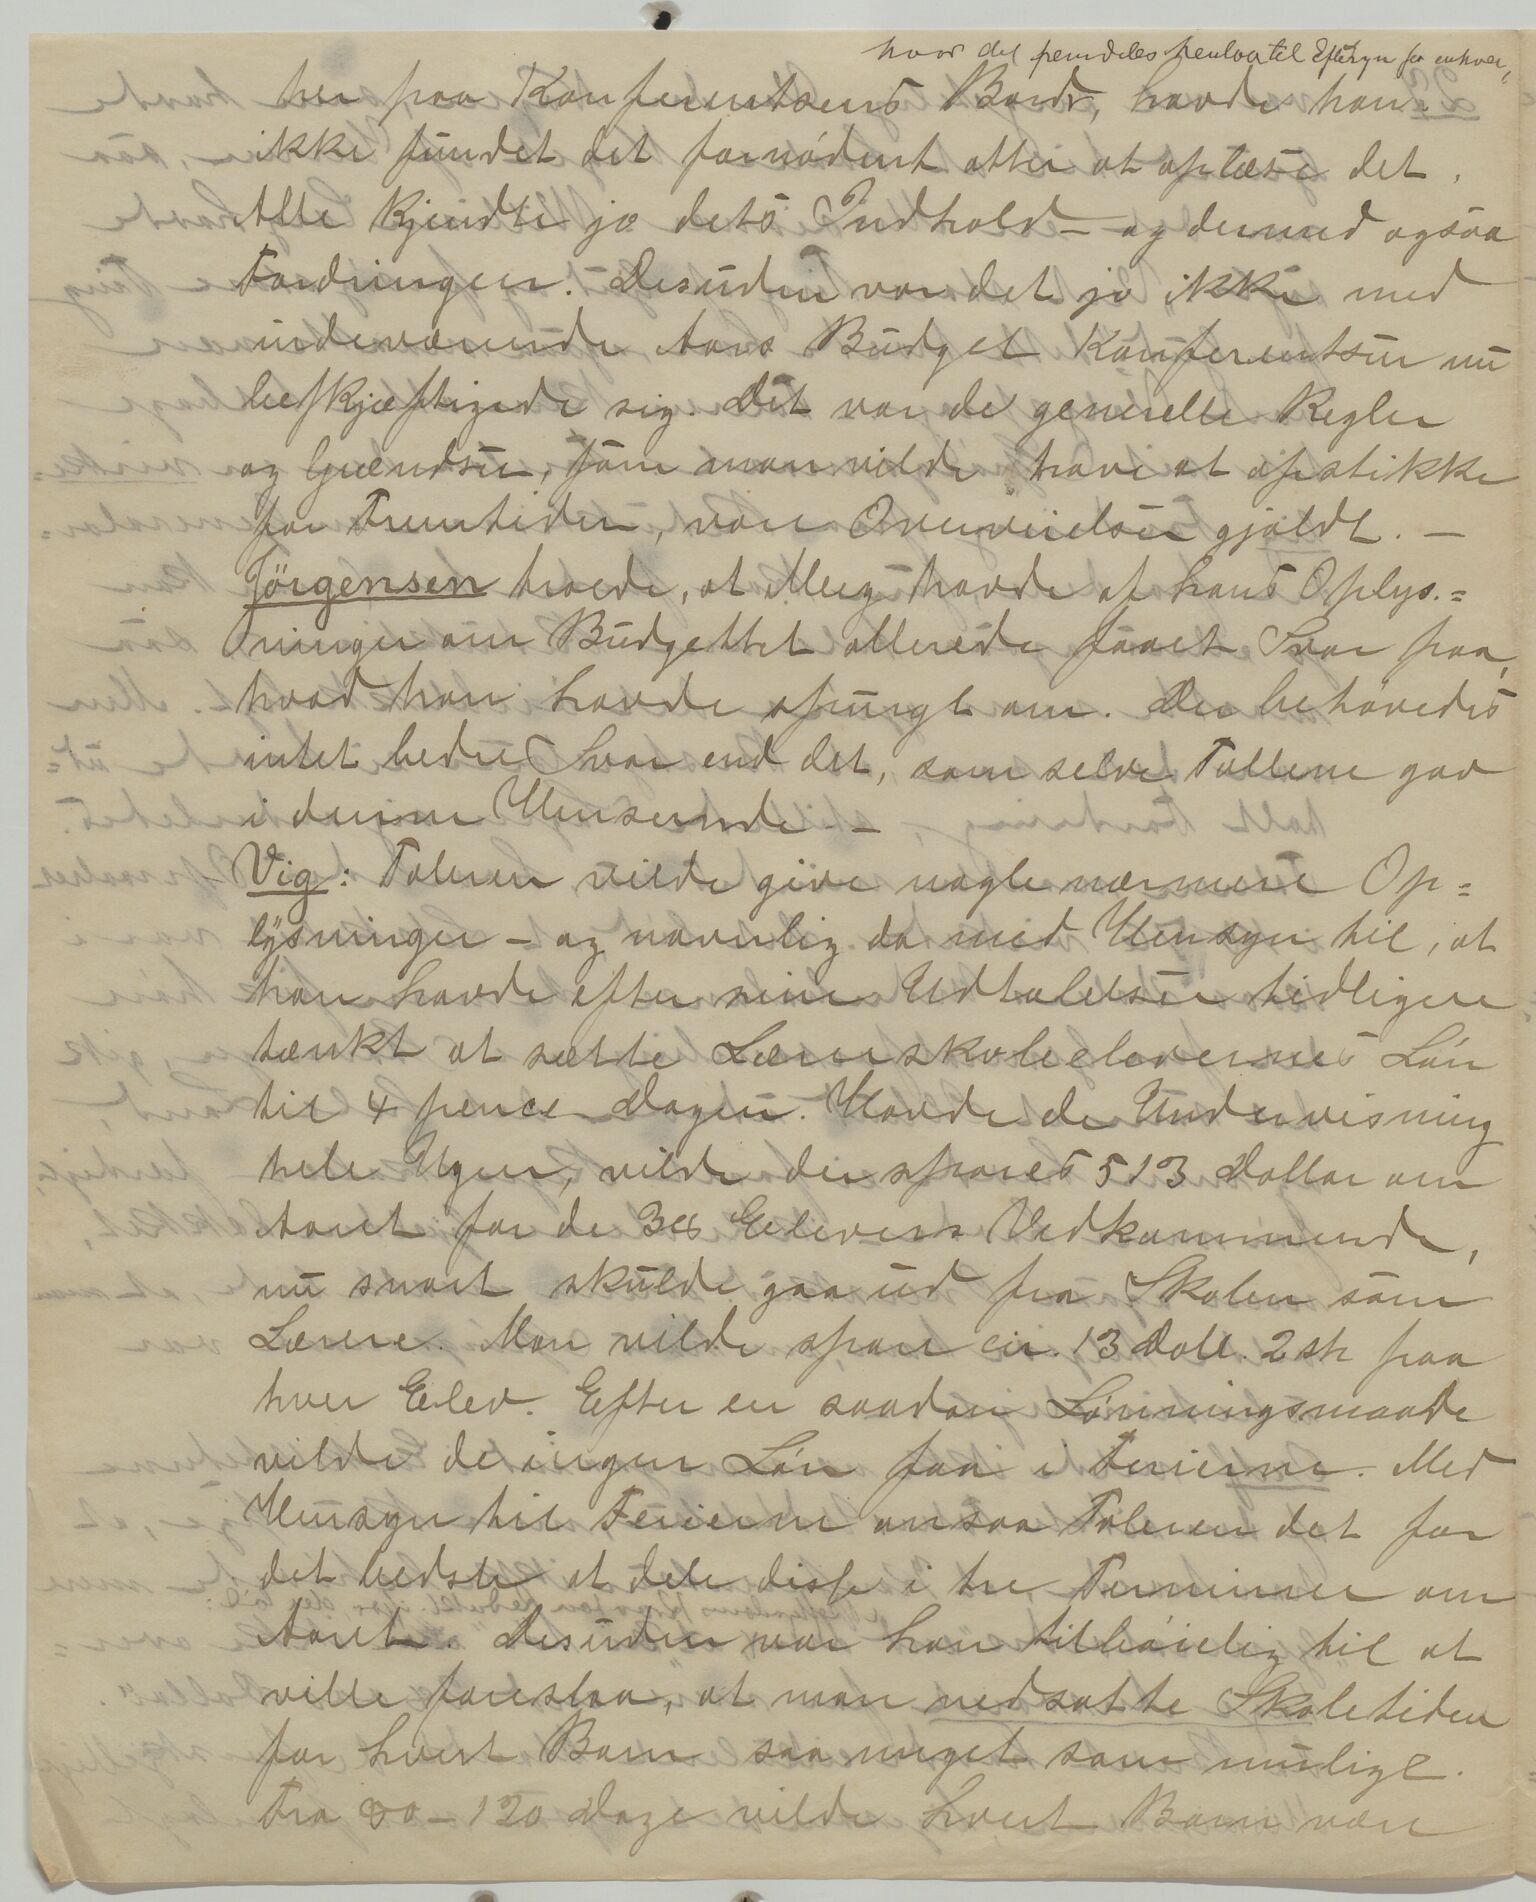 hvor det fremdeles henlaa til Eftersyn for enhver,
her paa Konferentsens Bord, havde han
ikke fundet det fornödent atter at oplæse det.
Alle kjendte jo dets Indhold – og dermed ogsaa
Fordringen. Desuden var det jo ikke med
indeværende Aars Budget Konferentsen nu
beskjæftigede sig. Det var de generelle Regler
og Grændser, som man vilde have at opstikke
for Fremtiden, vore Overveielser gjaldt. –
Jörgensen troede, at Meyg havde af hans Oplys.=
ninger om Budgettet allerede faaet Svar paa,
hvad han havde spurgt om. Der behövedes
intet bedre Svar end det, som selve Tallene gav
i denne Henseende. –
Vig: Taleren vilde give nogle nærmere Op=
lysninger – og navnlig da med Hensyn til, at
han havde efter sine Udtalelser tidligere
tænkt at sætte Lærerskoleelevernes Lön
til 4 pence Dagen. Havde de Undervisning
hele Ugen, vilde der spares 513 Dollar om
Aaret for de 38 Elevers Vedkommende,
nu snart skulde gaa ud fra Skolen som
Lærere. Man vilde spare cir. 13 Doll. 2 sh paa
hver Elev. Efter en saadan Lönningsmaade
vilde de ingen Lön faa i Ferierne. Med
Hensyn til Ferierne ansaa Taleren det for
det bedste at dele disse i tre Terminer om
Aaret. Desuden var han tilböielig til at
ville foreslaa, at man nedsatte Skoletiden
for hvert Barn saa meget som muligt.
Fra 80 – 120 Dage vilde hvert Barn være